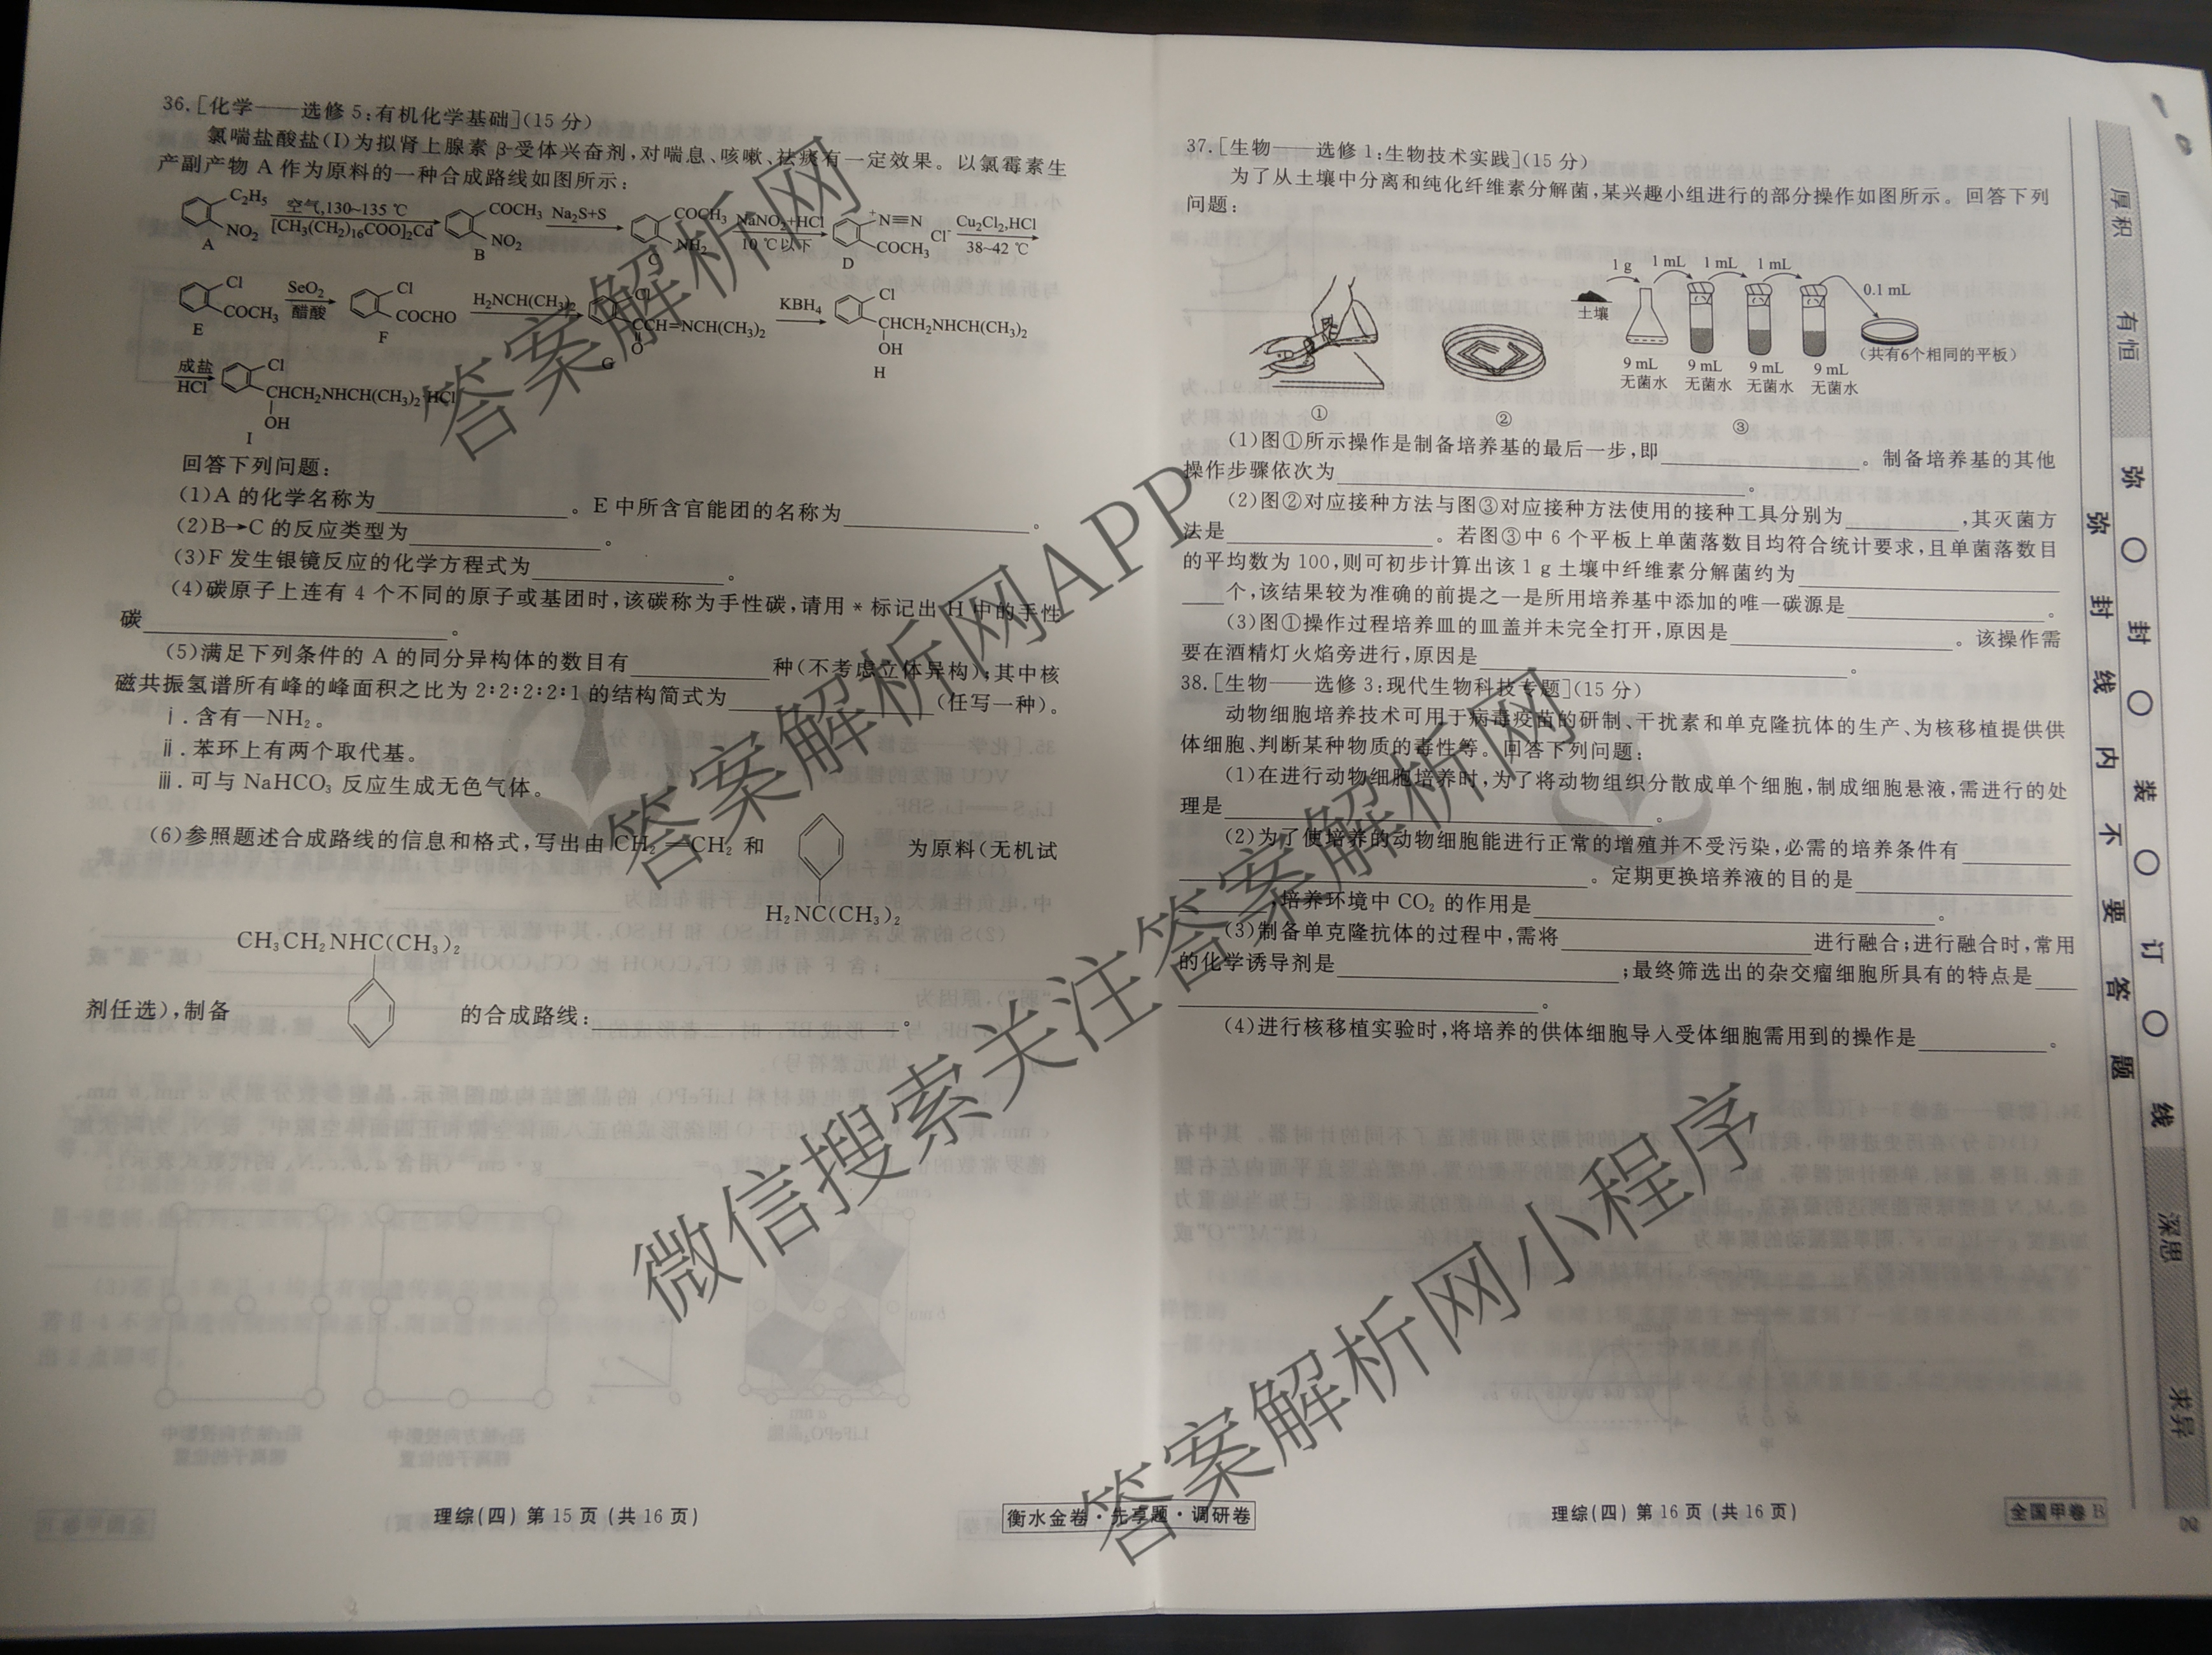 36.[化学——选修5:有机化学基础](15分)
氯喘盐酸盐(I)为拟肾上腺素β-受体兴奋剂,对喘息、咳嗽、祛痰有一定效果。以氯霉素生
产副产物A作为原料的一种合成路线如图所示:
C₂H₅ NO₂ A 空气,130~135 ℃ [CH₃(CH₂)₁₆COO]₂Cd COCH₃ NO₂ B Na₂S+S COCH₃ NH₂ C NaNO₂+HCl 10 ℃以下 ⁺N≡N COCH₃ Cl⁻ D Cu₂Cl₂,HCl 38~42 ℃
Cl COCH₃ E SeO₂ 醋酸 Cl COCHO F H₂NCH(CH₃)₂ Cl CCH=NCH(CH₃)₂ O G KBH₄ Cl CHCH₂NHCH(CH₃)₂ OH H
成盐 HCl Cl CHCH₂NHCH(CH₃)₂·HCl OH I
回答下列问题:
(1)A的化学名称为 。E中所含官能团的名称为 。
(2)B→C的反应类型为 。
(3)F发生银镜反应的化学方程式为 。
(4)碳原子上连有4个不同的原子或基团时,该碳称为手性碳,请用*标记出H中的手性
碳 。
(5)满足下列条件的A的同分异构体的数目有 种(不考虑立体异构);其中核
磁共振氢谱所有峰的峰面积之比为2:2:2:2:1的结构简式为 (任写一种)。
ⅰ.含有—NH₂。
ⅱ.苯环上有两个取代基。
ⅲ.可与NaHCO₃反应生成无色气体。
(6)参照题述合成路线的信息和格式,写出由CH₂=CH₂和 为原料(无机试
H₂NC(CH₃)₂
CH₃CH₂NHC(CH₃)₂
剂任选),制备 的合成路线: 。
理综(四) 第15页(共16页)
衡水金卷·先享题·调研卷
37.[生物——选修1:生物技术实践](15分)
为了从土壤中分离和纯化纤维素分解菌,某兴趣小组进行的部分操作如图所示。回答下列
问题:
1 g 1 mL 1 mL 1 mL 0.1 mL
土壤
(共有6个相同的平板)
9 mL 9 mL 9 mL 9 mL
无菌水 无菌水 无菌水 无菌水
① ② ③
(1)图①所示操作是制备培养基的最后一步,即 。制备培养基的其他
操作步骤依次为 。
(2)图②对应接种方法与图③对应接种方法使用的接种工具分别为 ,其灭菌方
法是 。若图③中6个平板上单菌落数目均符合统计要求,且单菌落数目
的平均数为100,则可初步计算出该1 g土壤中纤维素分解菌约为
个,该结果较为准确的前提之一是所用培养基中添加的唯一碳源是 。
(3)图①操作过程培养皿的皿盖并未完全打开,原因是 。该操作需
要在酒精灯火焰旁进行,原因是 。
38.[生物——选修3:现代生物科技专题](15分)
动物细胞培养技术可用于病毒疫苗的研制、干扰素和单克隆抗体的生产、为核移植提供供
体细胞、判断某种物质的毒性等。回答下列问题:
(1)在进行动物细胞培养时,为了将动物组织分散成单个细胞,制成细胞悬液,需进行的处
理是 。
(2)为了使培养的动物细胞能进行正常的增殖并不受污染,必需的培养条件有
。定期更换培养液的目的是
,培养环境中CO₂的作用是 。
(3)制备单克隆抗体的过程中,需将 进行融合;进行融合时,常用
的化学诱导剂是 ;最终筛选出的杂交瘤细胞所具有的特点是
。
(4)进行核移植实验时,将培养的供体细胞导入受体细胞需用到的操作是 。
理综(四) 第16页(共16页)
全国甲卷B
厚积 有恒 深思 求异
弥 封 装 订 线
弥 封 线 内 不 要 答 题
答案解析网
答案解析网APP
微信搜索关注答案解析网
答案解析网小程序